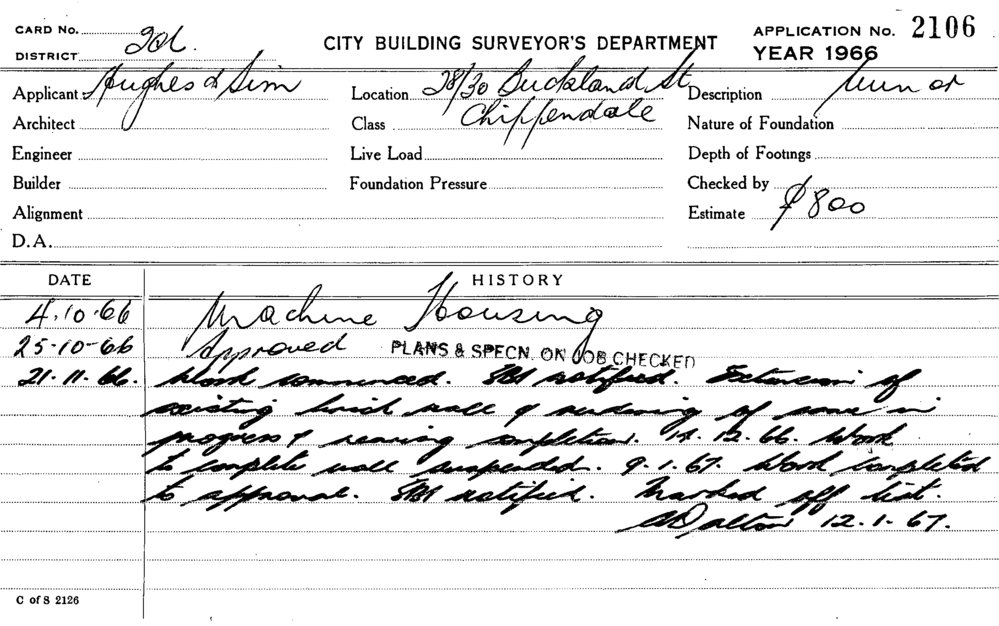 CARD No.
DISTRICT
CITY BUILDING SURVEYOR'S DEPARTMENT
APPLICATION No. 2106
YEAR 1966
Applicant Hughes & Sim
Location 28/30 Buckland St
Chippendale
Description
Architect
Class
Nature of Foundation
Engineer
Live Load
Depth of Footings
Builder
Foundation Pressure
Checked by
Alignment
Estimate 800
D.A.
DATE HISTORY
4.10.66 Machine Housing
25-10-66 Approved PLANS & SPECN. ON JOB CHECKED
21.11.66. Work commenced. notified. Extension of
existing brick wall & rendering of same in
progress & nearing completion. 14.12.66. Work
to complete wall suspended. 9.1.67. Work completed
to approval. notified. Marked off list.
Dalton 12.1.67.
C of S 2126